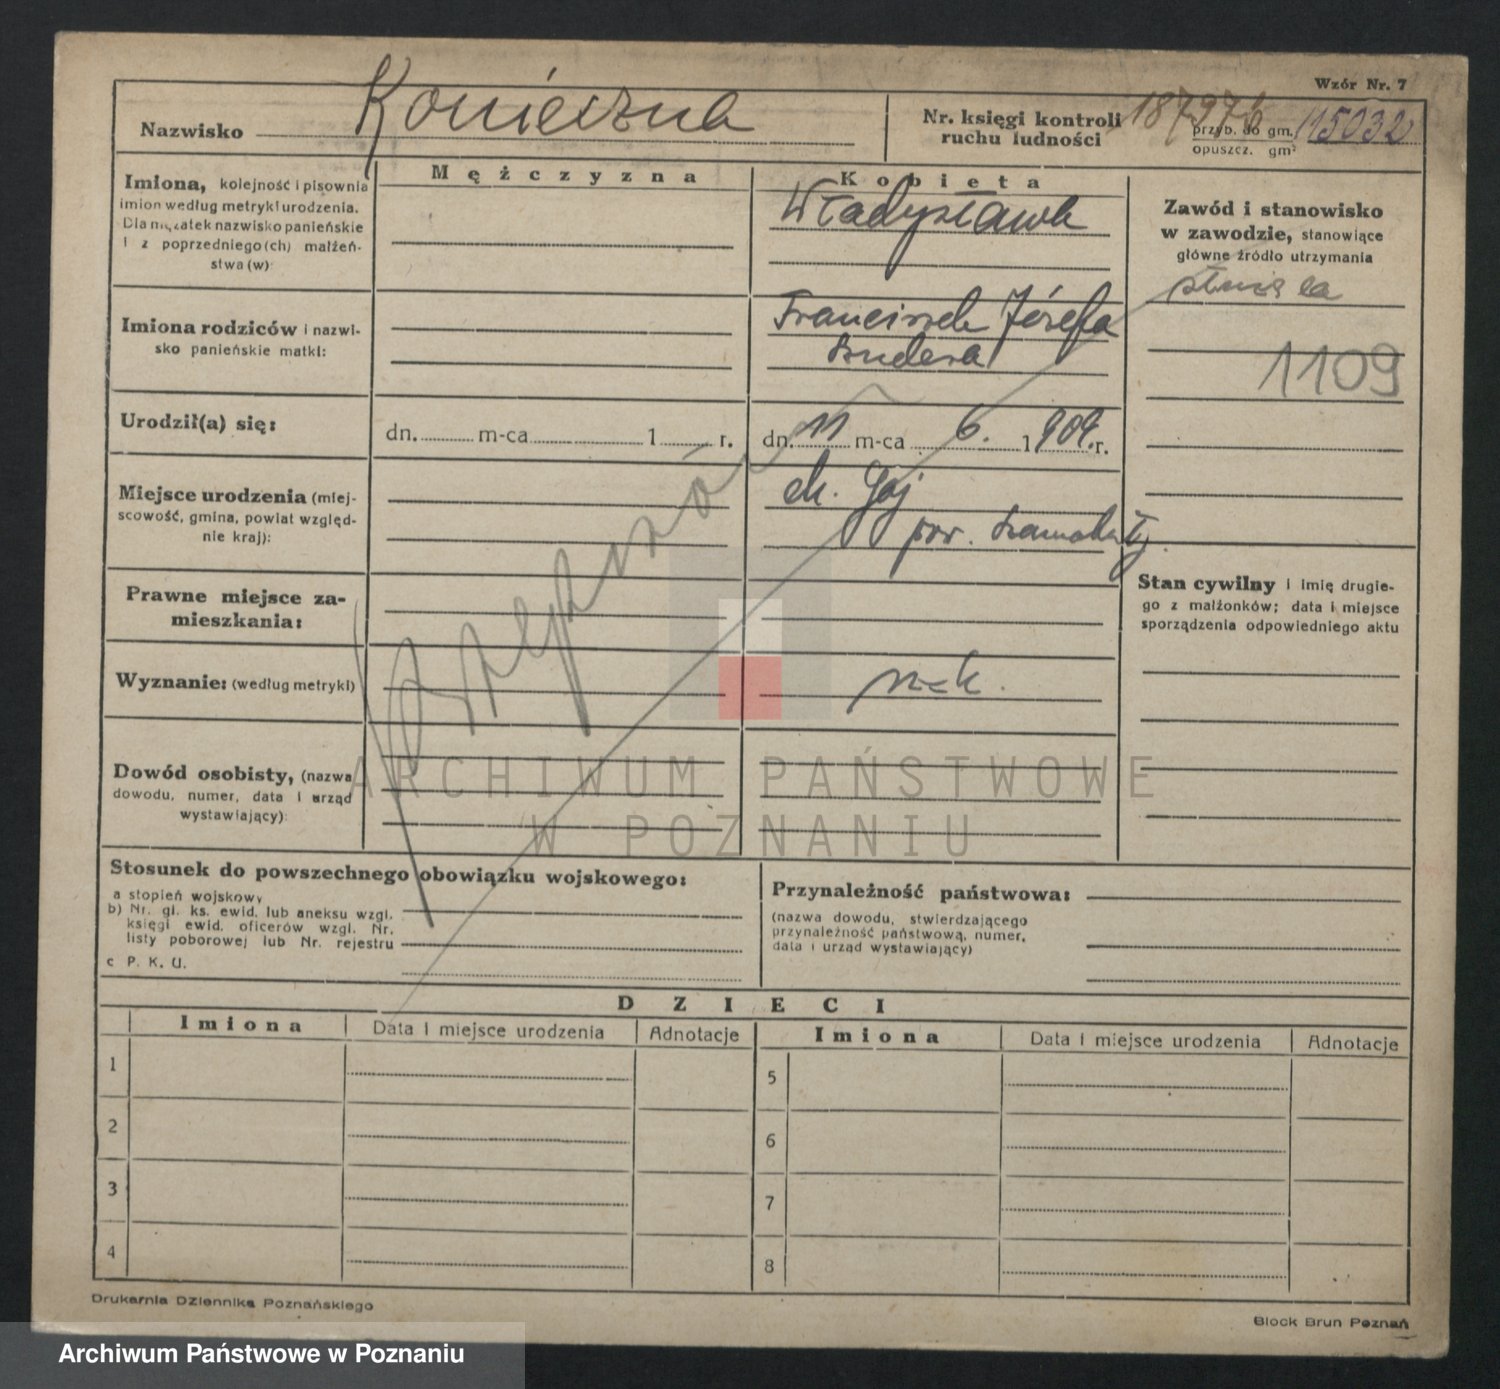 Wzór Nr. 7
Nazwisko Konieczna
Nr. księgi kontroli ruchu ludności
187976
przyb. do gm. 115032
opuszcz. gm
Mężczyzna
Kobieta
Imiona, kolejność i pisownia
imion według metryki urodzenia.
Dla mężatek nazwisko panieńskie
i z poprzedniego (ch) małżeń-
stwa (w)
Władysława
Zawód i stanowisko
w zawodzie, stanowiące
główne źródło utrzymania
służąca
1109
Imiona rodziców i nazwi-
sko panieńskie matki:
Franciszek Józefa
Szudera
Urodził(a) się:
dn. m-ca 1 r.
dn. 11 m-ca 6. 1909. r.
Miejsce urodzenia (miej-
scowość, gmina, powiat względ-
nie kraj):
Gaj
pow. Szamotuły
Prawne miejsce za-
mieszkania:
Stan cywilny i imię drugie-
go z małżonków; data i miejsce
sporządzenia odpowiedniego aktu
Wyznanie: (według metryki)
rz-k.
Dowód osobisty, (nazwa
dowodu, numer, data i urząd
wystawiający):
ARCHIWUM PAŃSTWOWE
W POZNANIU
Stosunek do powszechnego obowiązku wojskowego:
a stopień wojskowy
b) Nr. gl. ks. ewid. lub aneksu wzgl.
księgi ewid. oficerów wzgl. Nr.
listy poborowej lub Nr. rejestru
c P. K. U.
Przynależność państwowa:
(nazwa dowodu, stwierdzającego
przynależność państwową, numer,
data i urząd wystawiający)
DZIECI
Imiona Data i miejsce urodzenia Adnotacje Imiona Data i miejsce urodzenia Adnotacje
1 5
2 6
3 7
4 8
Drukarnia Dziennika Poznańskiego
Block Brun Poznań
Archiwum Państwowe w Poznaniu